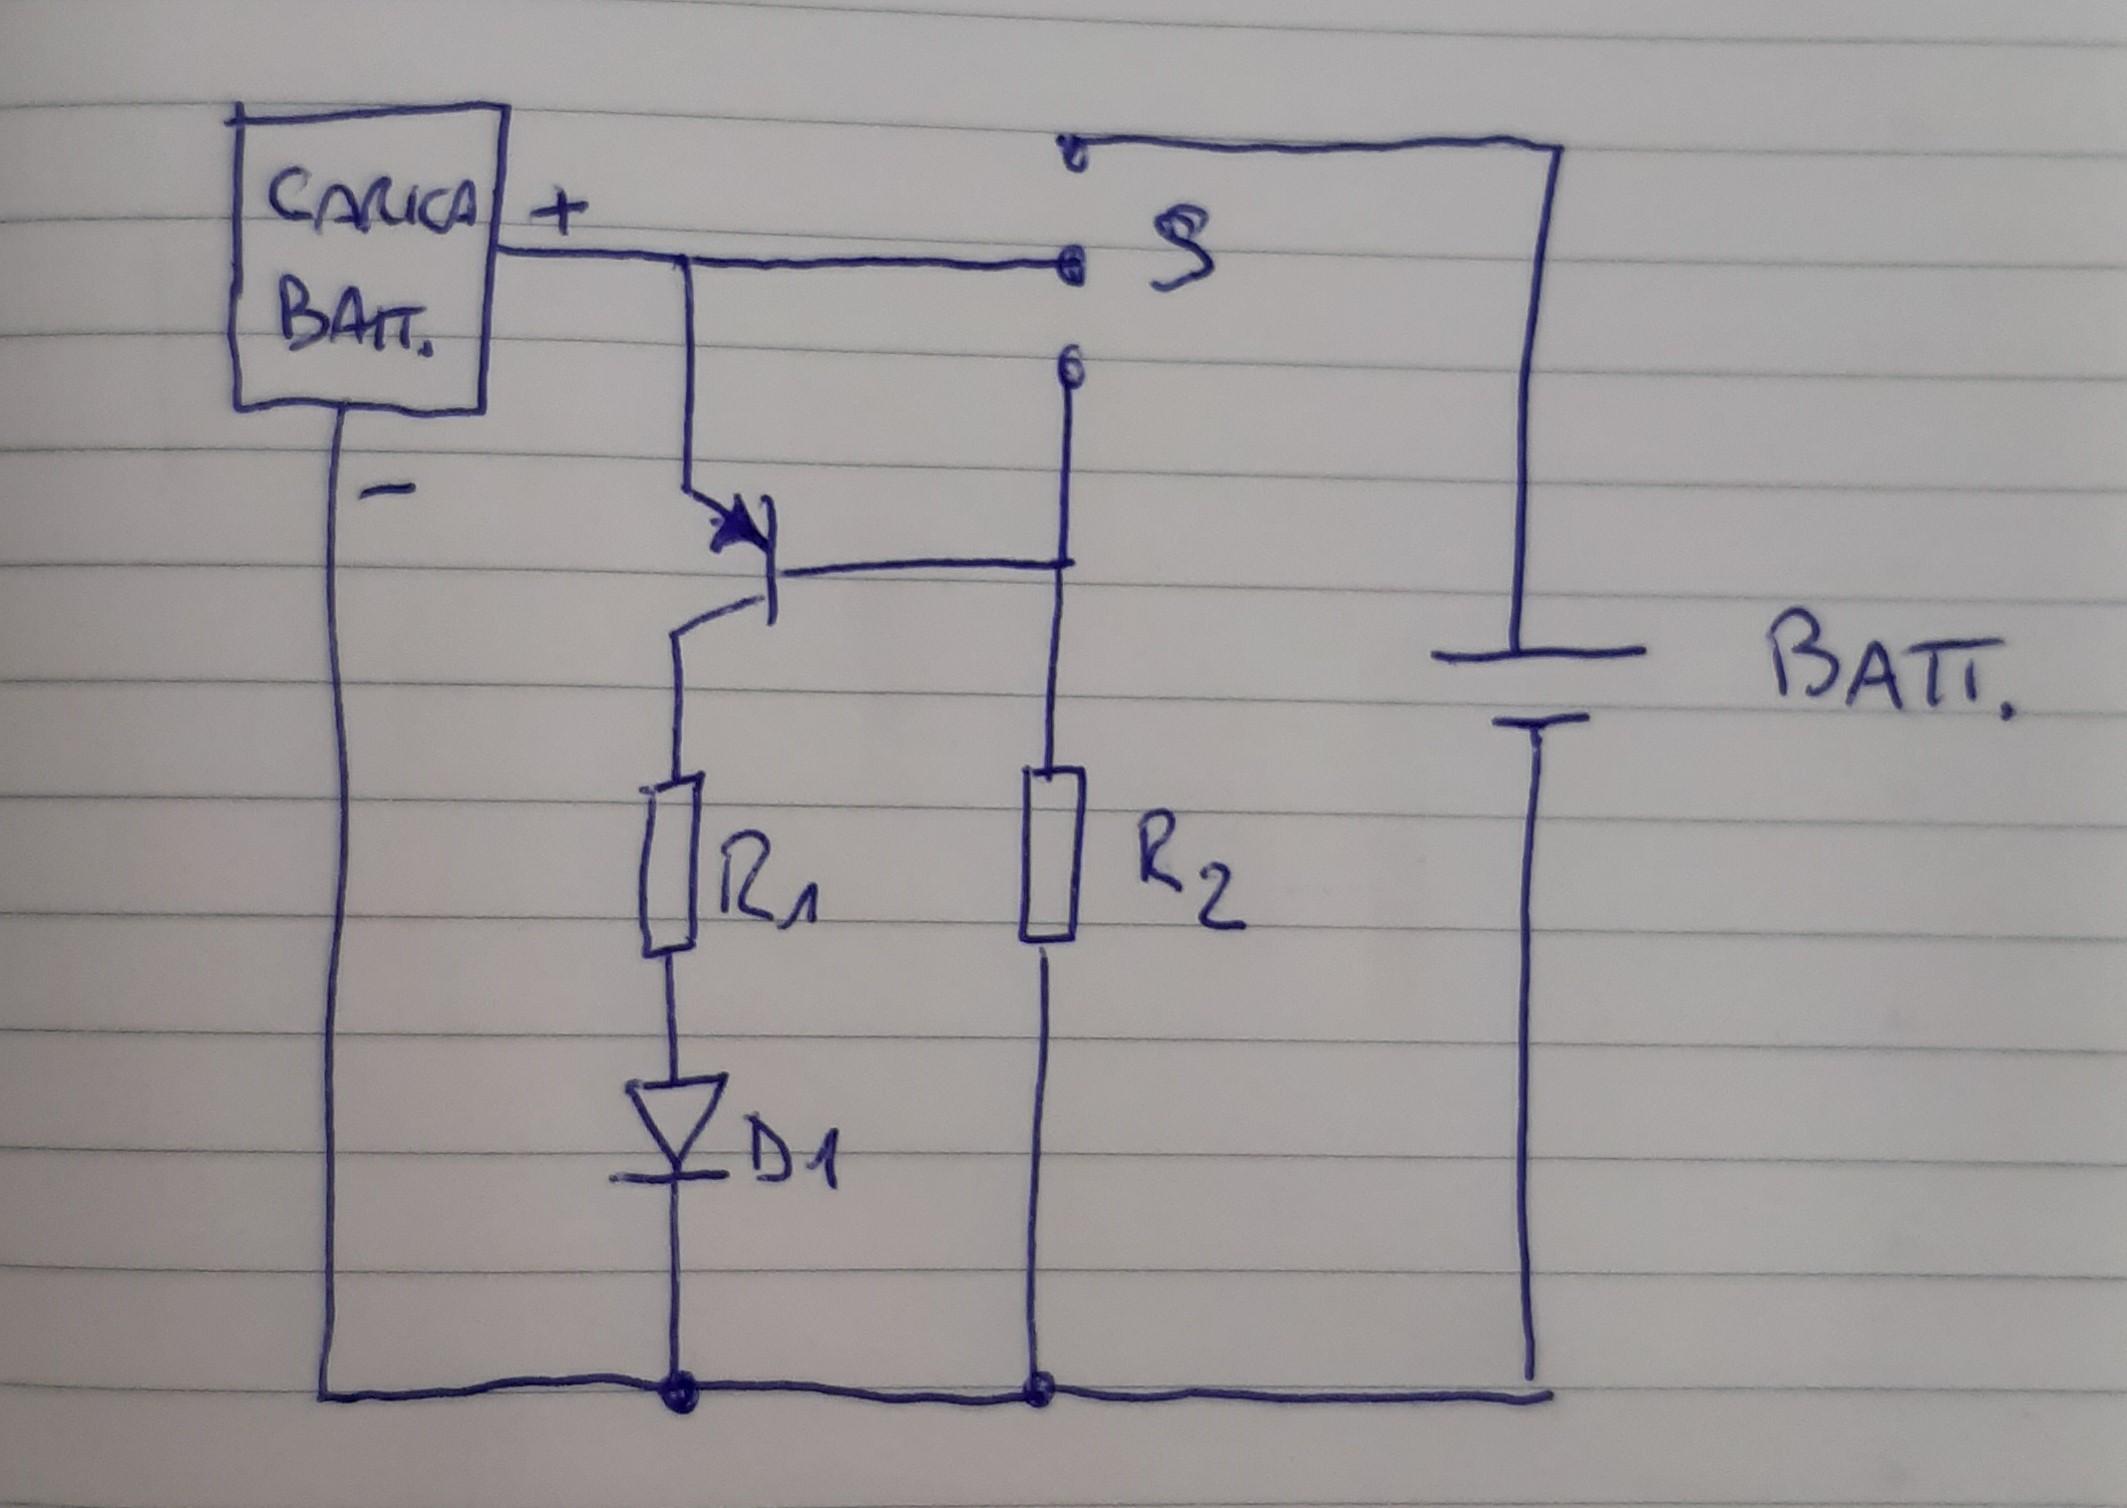 CARICA
BATT.
+
-
S
BATT.
R1
R2
D1